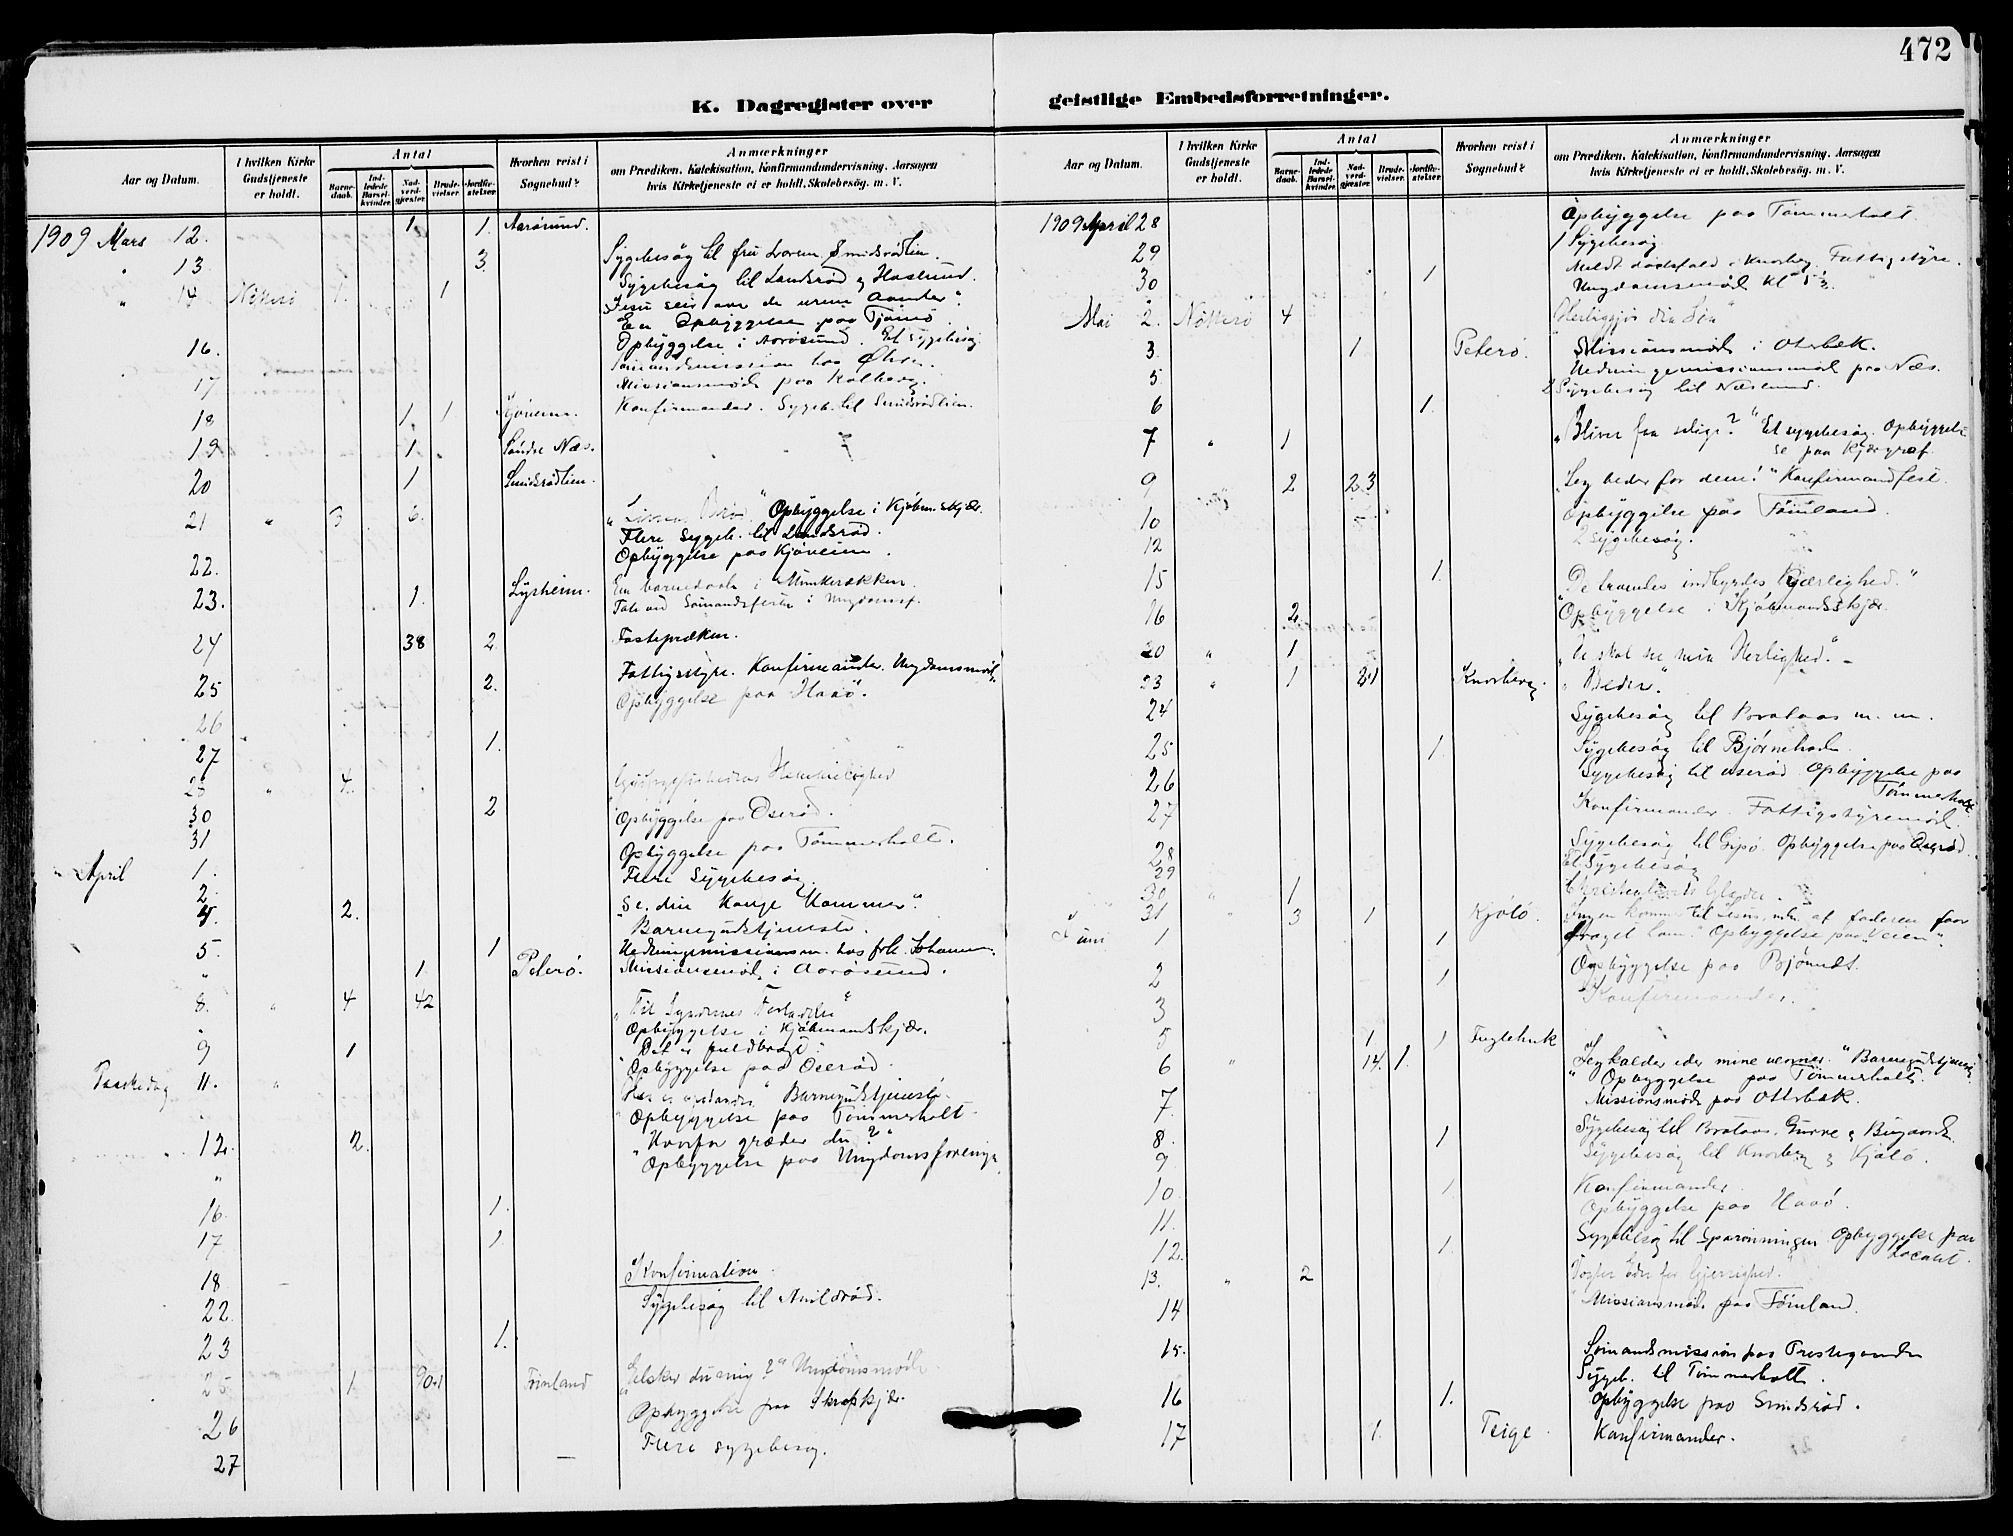 472
K. Dagregister over
geistlige Embedsforretninger.
Aar og Datum.
I hvilken Kirke Gudstjeneste er holdt.
Antal
Barnedaab.
Indledede Barselkvinder.
Nadverdgjester.
Brudevielser.
Jordfæstelser.
Hvorhen reist i Sognebud?
Anmærkninger
om Prædiken, Katekisation, Konfirmandundervisning, Aarsagen
hvis Kirketjeneste ei er holdt, Skolebesøg. m. V.
1909 Mars 12. 1 1. Aarøsund.
13. 3. Sygebesøg til fru Smidsrødlien.
14 Nøtterø 1. 1 Sygebesøg til Landsrød & Haslund.
Jesu seir over de urene aander".
En Opbyggelse paa Tjømø
16. Opbyggelse i Aarøsund. Et Sygebesøg
Sømandsmission hos Olsen.
17 Missionsmøde paa Kolberg.
18 1. 1 Konfirmander. Sygeb. til Smidsrødlien.
19 1. Søndre Næs.
20 1 Smidsrødlien.
21 " 3 6. "Livsens Brød". Opbyggelse i Kjøbm.skjær.
Flere Sygeb. til Landsrød.
22. Opbyggelse paa Kjøveien.
23. 1. Lysheim. En barnedaab i Munkerækken.
Tale ved Sømandsfesten i Ungdomsf.
24 38 2 Fastepræken.
25 2. Fattigstyre. Konfirmander. Ungdomsmøde.
26 Opbyggelse paa Haaø.
27 1.
28 " 4. Hemmelighed
30 2 Opbyggelse paa Oserød.
31 Opbyggelse paa Tømmerholt.
April 1. Flere Sygebesøg.
2.
4. 2. "Se, din Konge kommer".
Barnegudstjeneste.
5. 1 Hedningemissionsm. hos frk. Johannesen.
" 1 Peterø. Missionsmøde i Aarøsund.
8. " 4 42 "Til Syndernes Forladelse"
Opbyggelse i Kjøbmandskjær.
9 1 "Det er fuldbragt".
Opbyggelse paa Oserød.
Paaskedag 11. " "Han er opstanden" Barnegudstjeneste.
Opbyggelse paa Tømmerholt.
12. 2. "Hvorfor græder du?"
Opbyggelse paa Ungdomsforening.
16. 1.
17 1.
18 Konfirmation.
22. Sygebesøg til Arildsrød.
23 1.
25 1 90+1 Frinland "Elsker du mig?" Ungdomsmøde
26 Opbyggelse paa Skrapkjær.
27 Flere sygebesøg.
Aar og Datum.
I hvilken Kirke Gudstjeneste er holdt.
Antal
Barnedaab.
Indledede Barselkvinder.
Nadverdgjester.
Brudevielser.
Jordfæstelser.
Hvorhen reist i Sognebud?
Anmærkninger
om Prædiken, Katekisation, Konfirmandundervisning, Aarsagen
hvis Kirketjeneste ei er holdt, Skolebesøg. m. V.
1909 April 28 Opbyggelse paa Tømmerholt.
29 1 Sygebesøg
30 1 Meldt dødsfald i Knarberg. Fattigstyre.
Ungdomsmøde Kl 5½
Mai 2. Nøtterø 4 "Herliggjør din Søn"
3. 1 Peterø. Missionsmøde i Oterbæk.
5. Hedningemissionsmøde paa Næs.
6 1. 2 Sygebesøg til Næslund.
7 " 1 "Bliver faa salige?" Et sygebesøg. Opbyggelse paa Kjærgraf.
9 2 23 "Jeg beder for dem!" Konfirmandfest.
10 Opbyggelse paa Tømland.
12 2 Sygebesøg.
15 1.
16 2. "Deres indbyrdes Kjærlighed."
Opbyggelse i Kjøbmandskjær.
20 " 1 "De skal se min Herlighed."
23 " 1 21 Knarberg. "Beder".
24 Sygebesøg til Brataas m. m.
25 1. Sygebesøg til Bjørnebode.
26 Sygebesøg til Oserød. Opbyggelse paa Tømmerholt
27 Konfirmander. Fattigstyremøde.
28 Sygebesøg til Gipø. Opbyggelse paa Oserød.
29 Et Sygebesøg
30 " 1 Glæde.
31 " 3 1 Kjølø. "Ingen kommer til Jesus, uden at faderen faar draget ham." Opbyggelse paa "Veien".
Juni 1 1
2 1 Opbyggelse paa Bjønnes.
3 Konfirmander.
5 1 1 Fuglehuk
6 " 14. 1. "Jeg kalder eder mine venner." Barnegudstjeneste
Opbyggelse paa Tømmerholt.
7. Missionsmøde paa Otterbæk.
8. 1 Sygebesøg til Brataas, Gurre & Bugaarde.
9 Sygebesøg til Knarberg & Kjølø.
10 1. Konfirmander.
11. Opbyggelse paa Haaø.
12. 1. Sygebesøg til Sparønningen. Opbyggelse paa Localet.
13. " 2 Vogter Eder for Gjerrighed.
14 Missionsmøde paa Tømland.
15. Sømandsmission paa Prestegaarden
Sygeb. til Tømmerholt.
16 1. Opbyggelse paa Smidsrød.
17 1. Teige. Konfirmander.